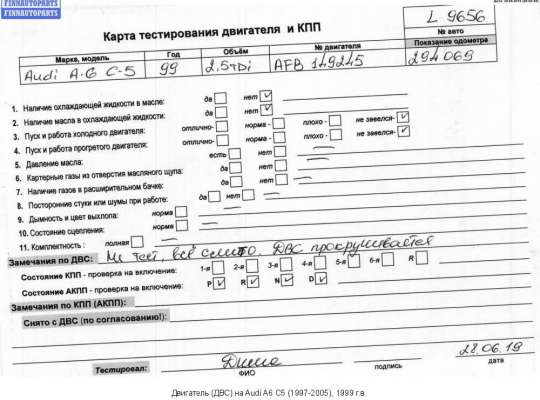 FINNAUTOPARTS
FINNAUTOPARTS
L 9656
Карта тестирования двигателя и КПП
№ авто
Марка, модель Год Объём № двигателя Показание одометра
Audi A-6 C-5 99 2,5TDi AFB 149245 294069
1. Наличие охлаждающей жидкости в масле: да нет
2. Наличие масла в охлаждающей жидкости: да нет
3. Пуск и работа холодного двигателя: отлично- норма- плохо- не завелся-
4. Пуск и работа прогретого двигателя: отлично- норма- плохо- не завелся-
5. Давление масла: есть нет
6. Картерные газы из отверстия масляного щупа: да нет
7. Наличие газов в расширительном бачке: да нет
8. Посторонние стуки или шумы при работе: да нет
9. Дымность и цвет выхлопа: норма
10. Состояние сцепления: норма
11. Комплектность: полная
Замечания по ДВС: Не тест, всё слито. ДВС прокручивается
Состояние КПП - проверка на включение: 1-я 2-я 3-я 4-я 5-я 6-я R
Состояние АКПП - проверка на включение: P R N D
Замечания по КПП (АКПП):
Снято с ДВС (по согласованию!):
Тестировал: Дима 28.06.19
ФИО подпись дата
Двигатель (ДВС) на Audi A6 C5 (1997-2005), 1999 г.в.